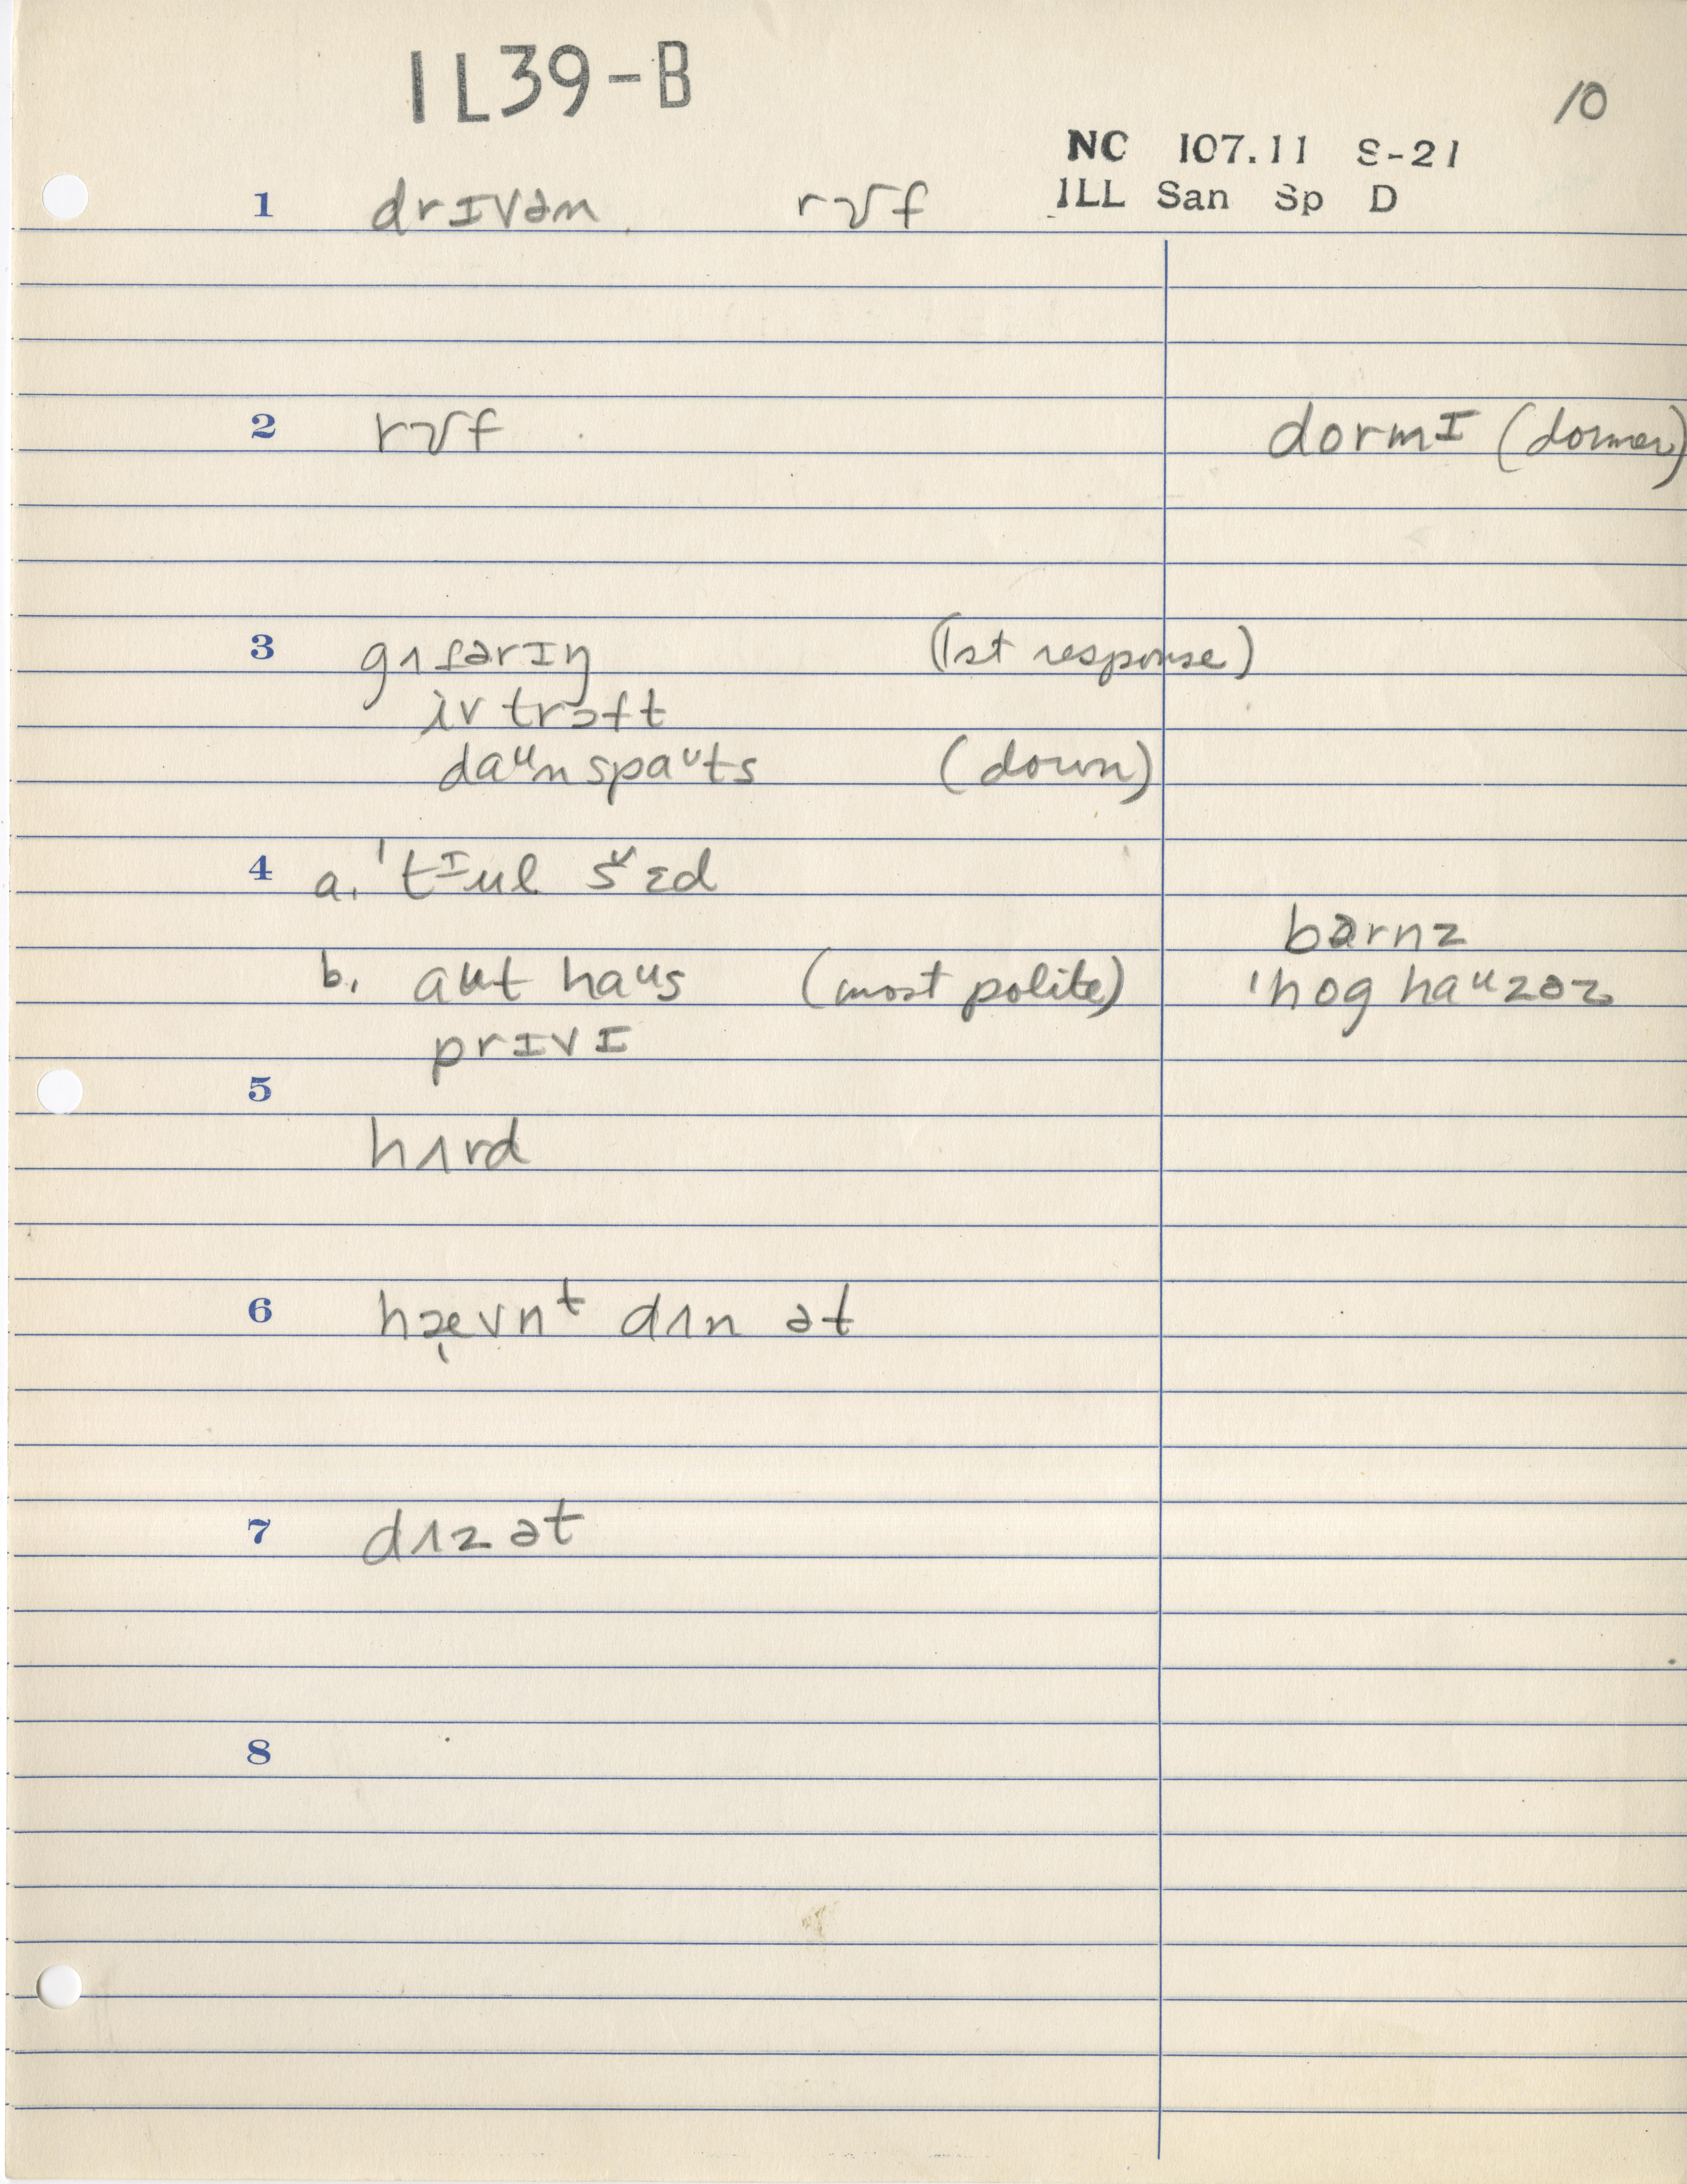 1L39-B
10
NC 107.11 S-21
ILL San Sp D
1 drɪvən rʊf
2 rʊf dormɪ (dormer)
3 gʌtərɪŋ (1st response)
iv trɔft
daᵘn spaᵘts (down)
4 a. ˈtᶦul šɛd
barnz
b. aut haᵘs (most polite) ˈhog haᵘzəz
prɪvɪ
5
hʌrd
6 hævnᵗ dʌn ət
7 dʌz ət
8